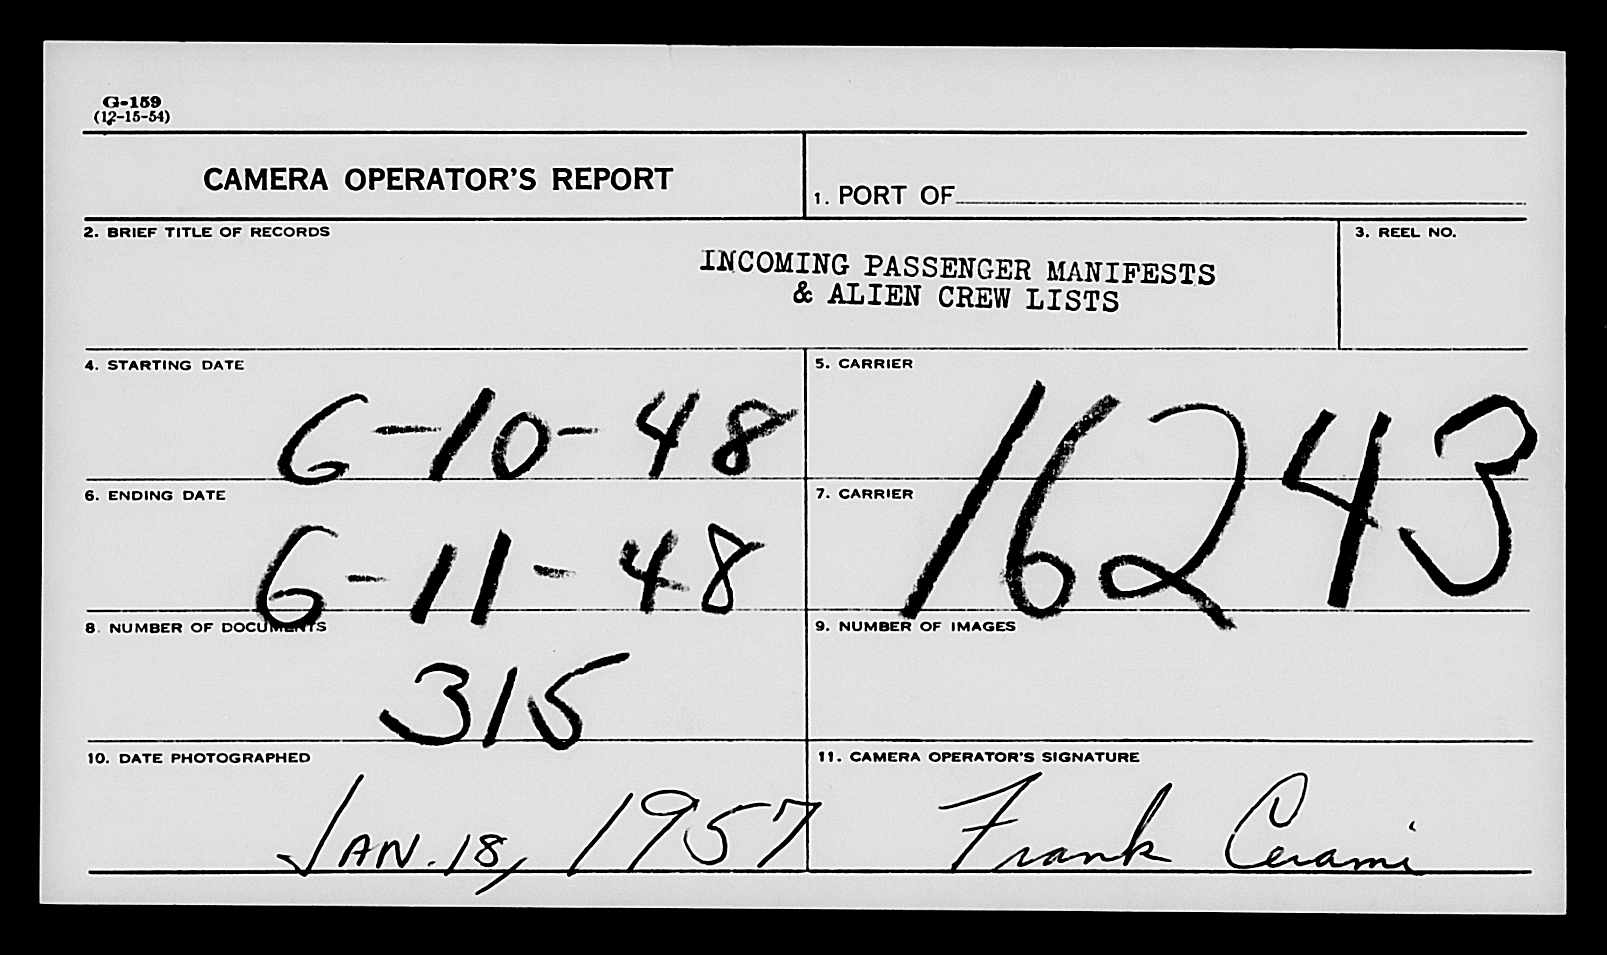 G-159
(12-15-54)
CAMERA OPERATOR'S REPORT
1. PORT OF
2. BRIEF TITLE OF RECORDS
INCOMING PASSENGER MANIFESTS
& ALIEN CREW LISTS
3. REEL NO.
4. STARTING DATE
6-10-48
5. CARRIER
16243
6. ENDING DATE
6-11-48
7. CARRIER
8. NUMBER OF DOCUMENTS
315
9. NUMBER OF IMAGES
10. DATE PHOTOGRAPHED
JAN. 18, 1957
11. CAMERA OPERATOR'S SIGNATURE
Frank Cerami